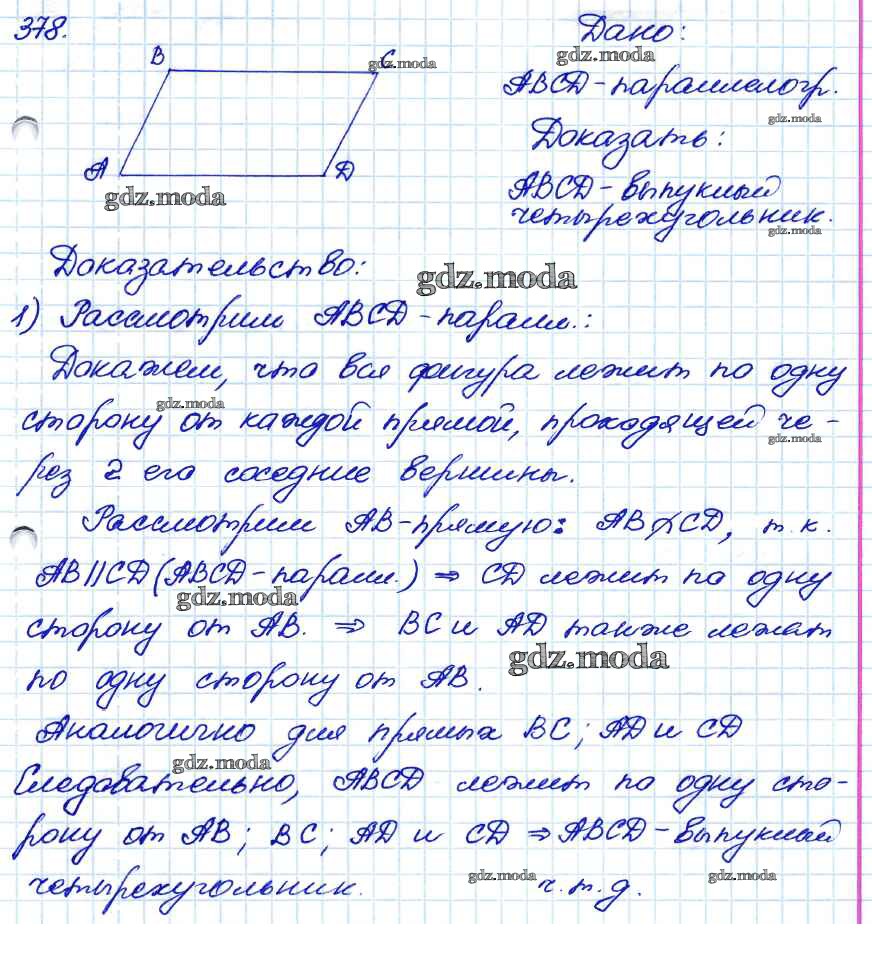 378.
Дано:
B
C
gdz.moda
gdz.moda
ABCD-параллелогр.
gdz.moda
Доказать:
A
D
gdz.moda
ABCD-выпуклый
четырехугольник.
gdz.moda
Доказательство:
gdz.moda
1) Рассмотрим ABCD-паралл.:
Докажем, что вся фигура лежит по одну
gdz.moda
сторону от каждой прямой, проходящей че-
gdz.moda
рез 2 его соседние вершины.
Рассмотрим AB-прямую: AB∦CD, т.к.
AB||CD (ABCD-паралл.) ⇒ CD лежит по одну
gdz.moda
сторону от AB. ⇒ BC и AD также лежат
gdz.moda
по одну сторону от AB.
Аналогично для прямых BC; AD и CD
gdz.moda
Следовательно, ABCD лежит по одну сто-
рону от AB; BC; AD и CD ⇒ ABCD-выпуклый
четырехугольник. ч.т.д.
gdz.moda
gdz.moda